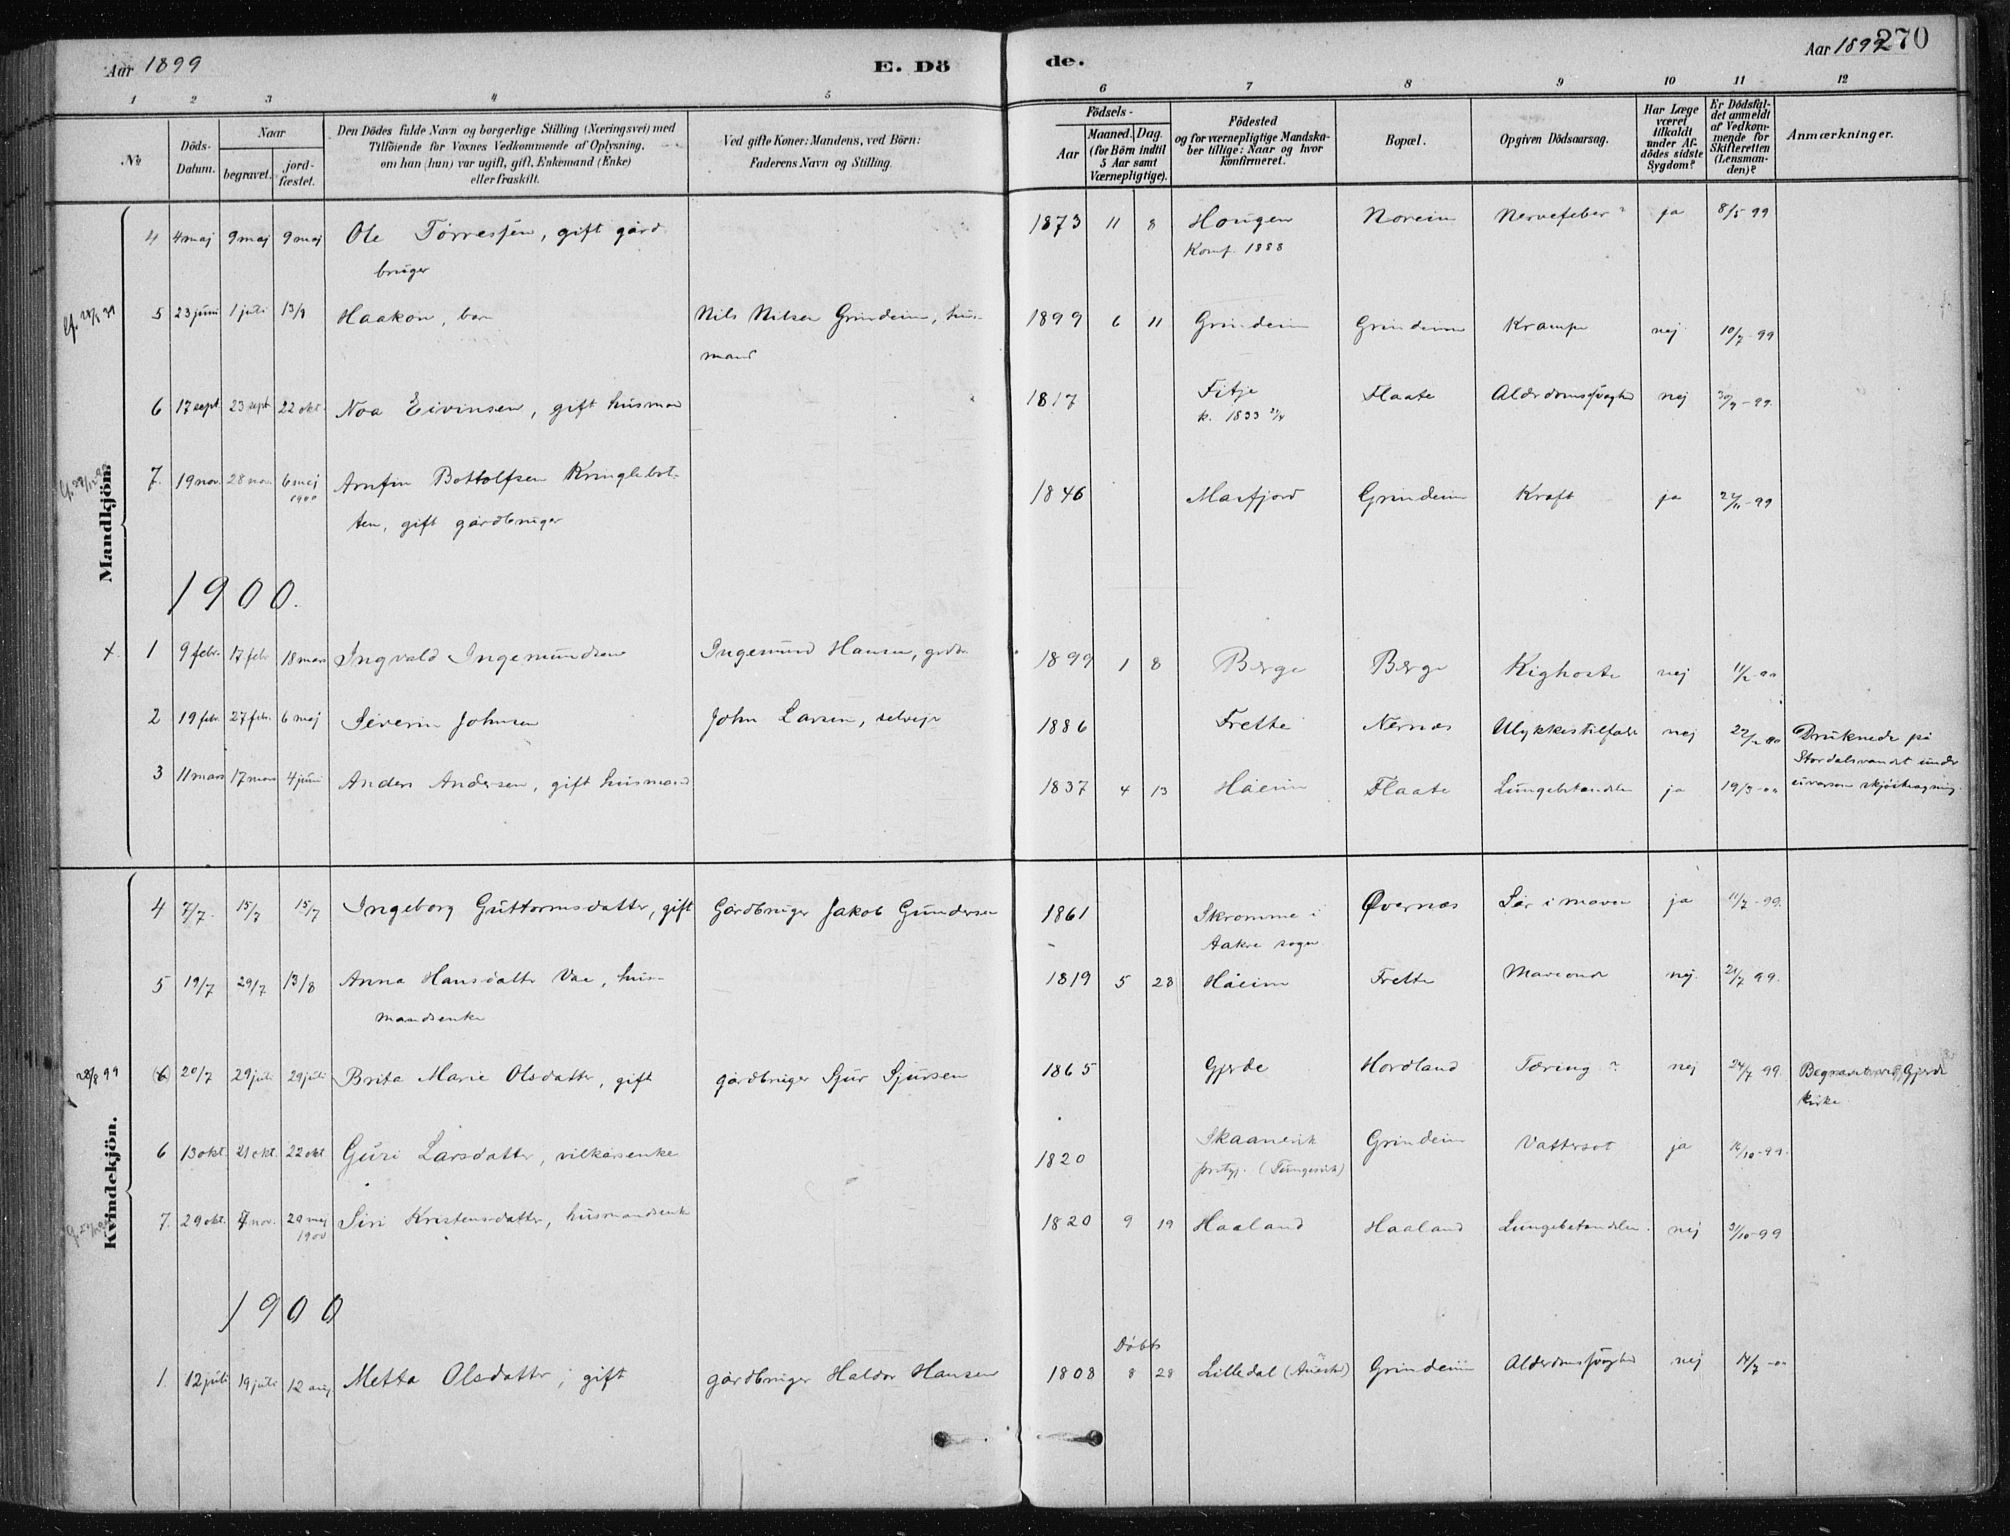 Aar 1899 E. Dö de. Aar 1899 270
1 2 3 4 5 6 7 8 9 10 11 12
No
Döds-Datum.
Naar
begravet.
jord-fæstet.
Den Dödes fulde Navn og borgerlige Stilling (Næringsvei) med
Tilföiende for Voxnes Vedkommende af Oplysning,
om han (hun) var ugift, gift, Enkemand (Enke)
eller fraskilt.
Ved gifte Koner: Mandens, ved Börn:
Faderens Navn og Stilling.
Födsels-
Aar
Maaned. Dag.
(for Börn indtil
5 Aar samt
Værnepligtige).
Födested
og for værnepligtige Mandska-
ber tillige: Naar og hvor
konfirmeret.
Bopæl.
Opgiven Dödsaarsag.
Har Læge
været
tilkaldt
under Af-
dödes sidste
Sygdom?
Er Dödsfal-
det anmeldt
af Vedkom-
mende for
Skifteretten
(Lensman-
den)?
Anmærkninger.
Mandkjön.
4 4 maj 9 maj 9 maj Ole Tørressen, gift gård 1873 11 8 Hougen Noreim Nervefeber? ja 8/5 99
bruger Konf. 1888
5 23 juni 1 juli 13/8 Haakon, barn Nils Nilsen Grindeim, hus- 1899 6 11 Grindeim Grindeim Krampe nej 10/7-99
mand
6 17 sept 23 sept 22 okt. Noa Eivinsen, gift husmand 1817 Fitje Flaate Alderdomssvaghed nej 30/9-99.
k. 1833
7. 19 nov. 28 nov. 6 maj Arnfin Bottolfsen Kringlebot- 1846 Masfjord Grindeim Kræft ja 99
1900
ten, gift gårdbruger
1900.
+ 1 9 febr. 17 febr 18 mars Ingvald Ingemundsen Ingemund Hansen, grdbr. 1899 1 8 Berge Berge Kighoste nej 11/2 00
2 19 febr. 27 febr. 6 maj Severin Johnsen John Larsen, selvejer 1886 Frette Nernæs Ulykkestilfælde nej 22/2 00 Druknede på
Stordalsvandet under
3 11 mars 17 mars 4 juni Anders Andersen, gift husmand 1837 4 13 Håeim Flaate Lungebetændelse ja 19/3-00
Kvindekjön.
4 7/7. 15/7 15/7 Ingeborg Guttormsdatter, gift Gårdbruger Jakob Gundersen 1861 Skromme i Øvernæs Sår i maven ja 11/7-99.
Aakre sogn
5 19/7 29/7 13/8 Anna Hansdatter Vae, hus- 1819 5 28 Håeim Frette Maveonde nej. 21/7 99.
mandsenke
28/8 99 (6) 20/7 29 juli 29 juli Brita Marie Olsdatter, gift gårdbruger Sjur Sjursen 1865 Gjerde Hordland Tæring? nej 24/7 99. Begravet ved Gjerde
kirke.
6 13 okt. 21 okt. 22 okt Guri Larsdatter, vilkårsenke 1820 Skaanevik Grindeim Vattersot ja 16/10-99.
7. 29 okt. 7 nov. 20 maj Siri Kristensdatter, husmandsenke 1820 9 19 Haaland Haaland Lungebetændelse. nej 31/10-99
1900
1900
Døbt
1. 12 juli 19 juli 12 aug. Metta Olsdatter, gift gårdbruger Haldor Hansen 1808 8 28 Lilledal Grindeim Alderdomssvaghed nej 14/7-00